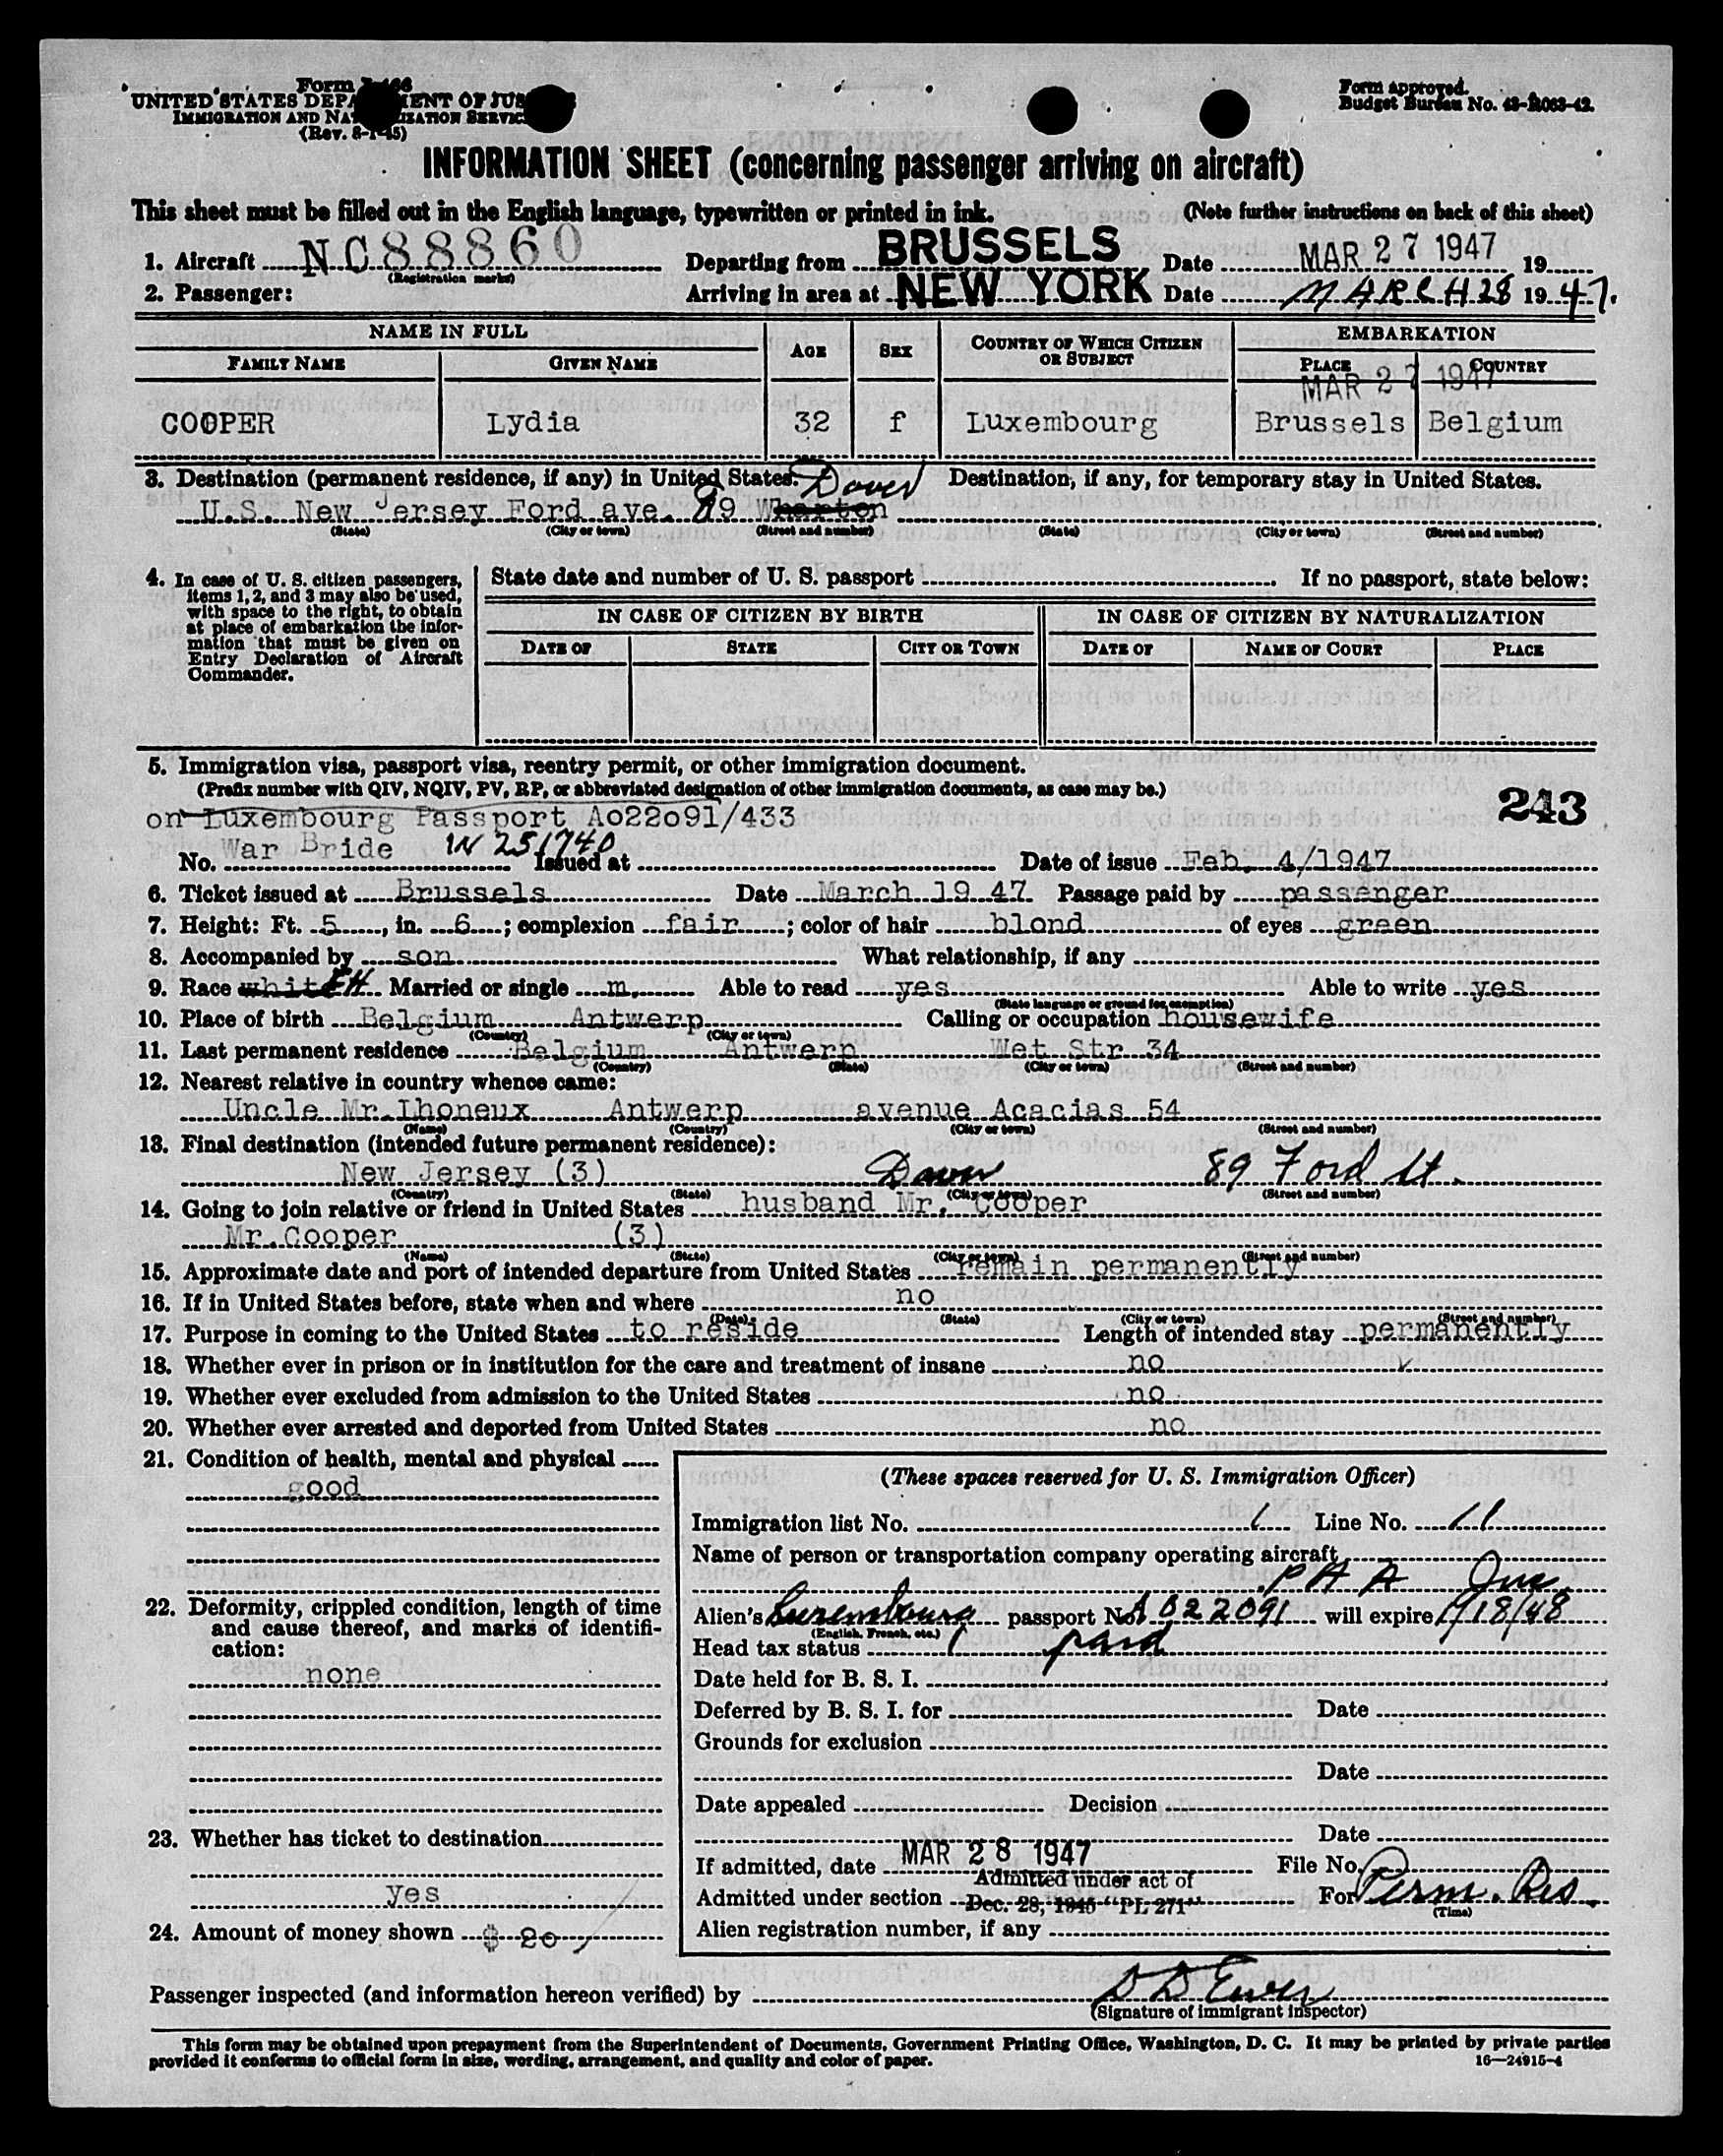 Form I-466
UNITED STATES DEPARTMENT OF JUSTICE
IMMIGRATION AND NATURALIZATION SERVICE
(Rev. 8-1-45)
Form approved.
Budget Bureau No. 43-R063-42.
INFORMATION SHEET (concerning passenger arriving on aircraft)
This sheet must be filled out in the English language, typewritten or printed in ink. (Note further instructions on back of this sheet)
1. Aircraft NC88860 Departing from BRUSSELS Date MAR 27 1947 19
(Registration marks)
2. Passenger: Arriving in area at NEW YORK Date MARCH 28 1947.
NAME IN FULL AGE SEX COUNTRY OF WHICH CITIZEN OR SUBJECT EMBARKATION
FAMILY NAME GIVEN NAME PLACE COUNTRY
MAR 27 1947
COOPER Lydia 32 f Luxembourg Brussels Belgium
3. Destination (permanent residence, if any) in United States. Dover Destination, if any, for temporary stay in United States.
U.S. New Jersey Ford ave. 89 Wharton
(State) (City or town) (Street and number) (State) (City or town) (Street and number)
4. In case of U. S. citizen passengers, items 1, 2, and 3 may also be used, with space to the right, to obtain at place of embarkation the information that must be given on Entry Declaration of Aircraft Commander.
State date and number of U. S. passport If no passport, state below:
IN CASE OF CITIZEN BY BIRTH IN CASE OF CITIZEN BY NATURALIZATION
DATE OF STATE CITY OR TOWN DATE OF NAME OF COURT PLACE
5. Immigration visa, passport visa, reentry permit, or other immigration document.
(Prefix number with QIV, NQIV, PV, RP, or abbreviated designation of other immigration documents, as case may be.)
243
on Luxembourg Passport Ao22o91/433
No. War Bride IN 251740 Issued at Date of issue Feb. 4/1947
6. Ticket issued at Brussels Date March 19 47. Passage paid by passenger
7. Height: Ft. 5, in. 6; complexion fair; color of hair blond of eyes green
8. Accompanied by son What relationship, if any
9. Race white Married or single m. Able to read yes Able to write yes
(State language or ground for exemption)
10. Place of birth Belgium Antwerp Calling or occupation housewife
(Country) (City or town)
11. Last permanent residence Belgium Antwerp Wet Str 34
(Country) (State) (City or town) (Street and number)
12. Nearest relative in country whence came:
Uncle Mr.Lhoneux Antwerp avenue Acacias 54
(Name) (Country) (City or town) (Street and number)
13. Final destination (intended future permanent residence):
New Jersey (3) Dover 89 Ford St.
(Country) (State) (City or town) (Street and number)
14. Going to join relative or friend in United States husband Mr. Cooper
Mr.Cooper (3)
(Name) (State) (City or town) (Street and number)
15. Approximate date and port of intended departure from United States remain permanently
16. If in United States before, state when and where no
(Date) (State) (City or town) (Street and number)
17. Purpose in coming to the United States to reside Length of intended stay permanently
18. Whether ever in prison or in institution for the care and treatment of insane no
19. Whether ever excluded from admission to the United States no
20. Whether ever arrested and deported from United States no
21. Condition of health, mental and physical
good
22. Deformity, crippled condition, length of time and cause thereof, and marks of identification:
none
23. Whether has ticket to destination
yes
24. Amount of money shown $ 20
(These spaces reserved for U. S. Immigration Officer)
Immigration list No. 1 Line No. 11
Name of person or transportation company operating aircraft
P A A Inc.
Alien's Luxembourg passport No. A022091 will expire 1/18/48
(English, French, etc.)
Head tax status paid
Date held for B. S. I.
Deferred by B. S. I. for Date
Grounds for exclusion
Date
Date appealed Decision
Date
If admitted, date MAR 28 1947 File No.
Admitted under section Admitted under act of Dec. 28, 1945 "PL 271" For Perm. Res.
(Time)
Alien registration number, if any
Passenger inspected (and information hereon verified) by
(Signature of immigrant inspector)
This form may be obtained upon prepayment from the Superintendent of Documents, Government Printing Office, Washington, D. C. It may be printed by private parties
provided it conforms to official form in size, wording, arrangement, and quality and color of paper. 16—24915-4